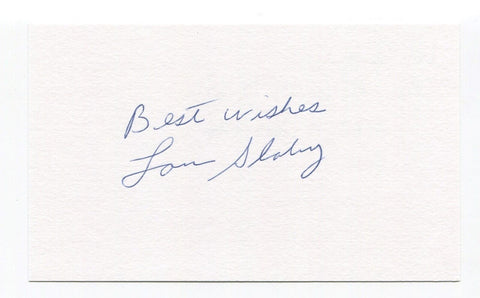 Best wishes
Lou Slaby